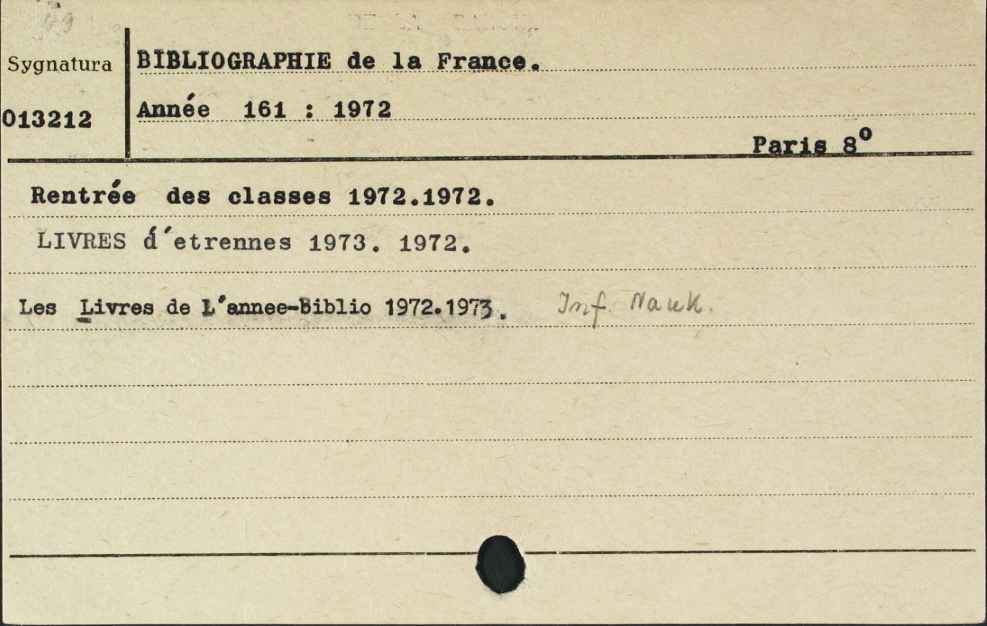 Sygnatura
BIBLIOGRAPHIE de la France.
013212
Année 161 : 1972
Paris 8º
Rentrée des classes 1972.1972.
LIVRES d'etrennes 1973. 1972.
Les Livres de L'annee-Biblio 1972.1973. Inf. Nauk.